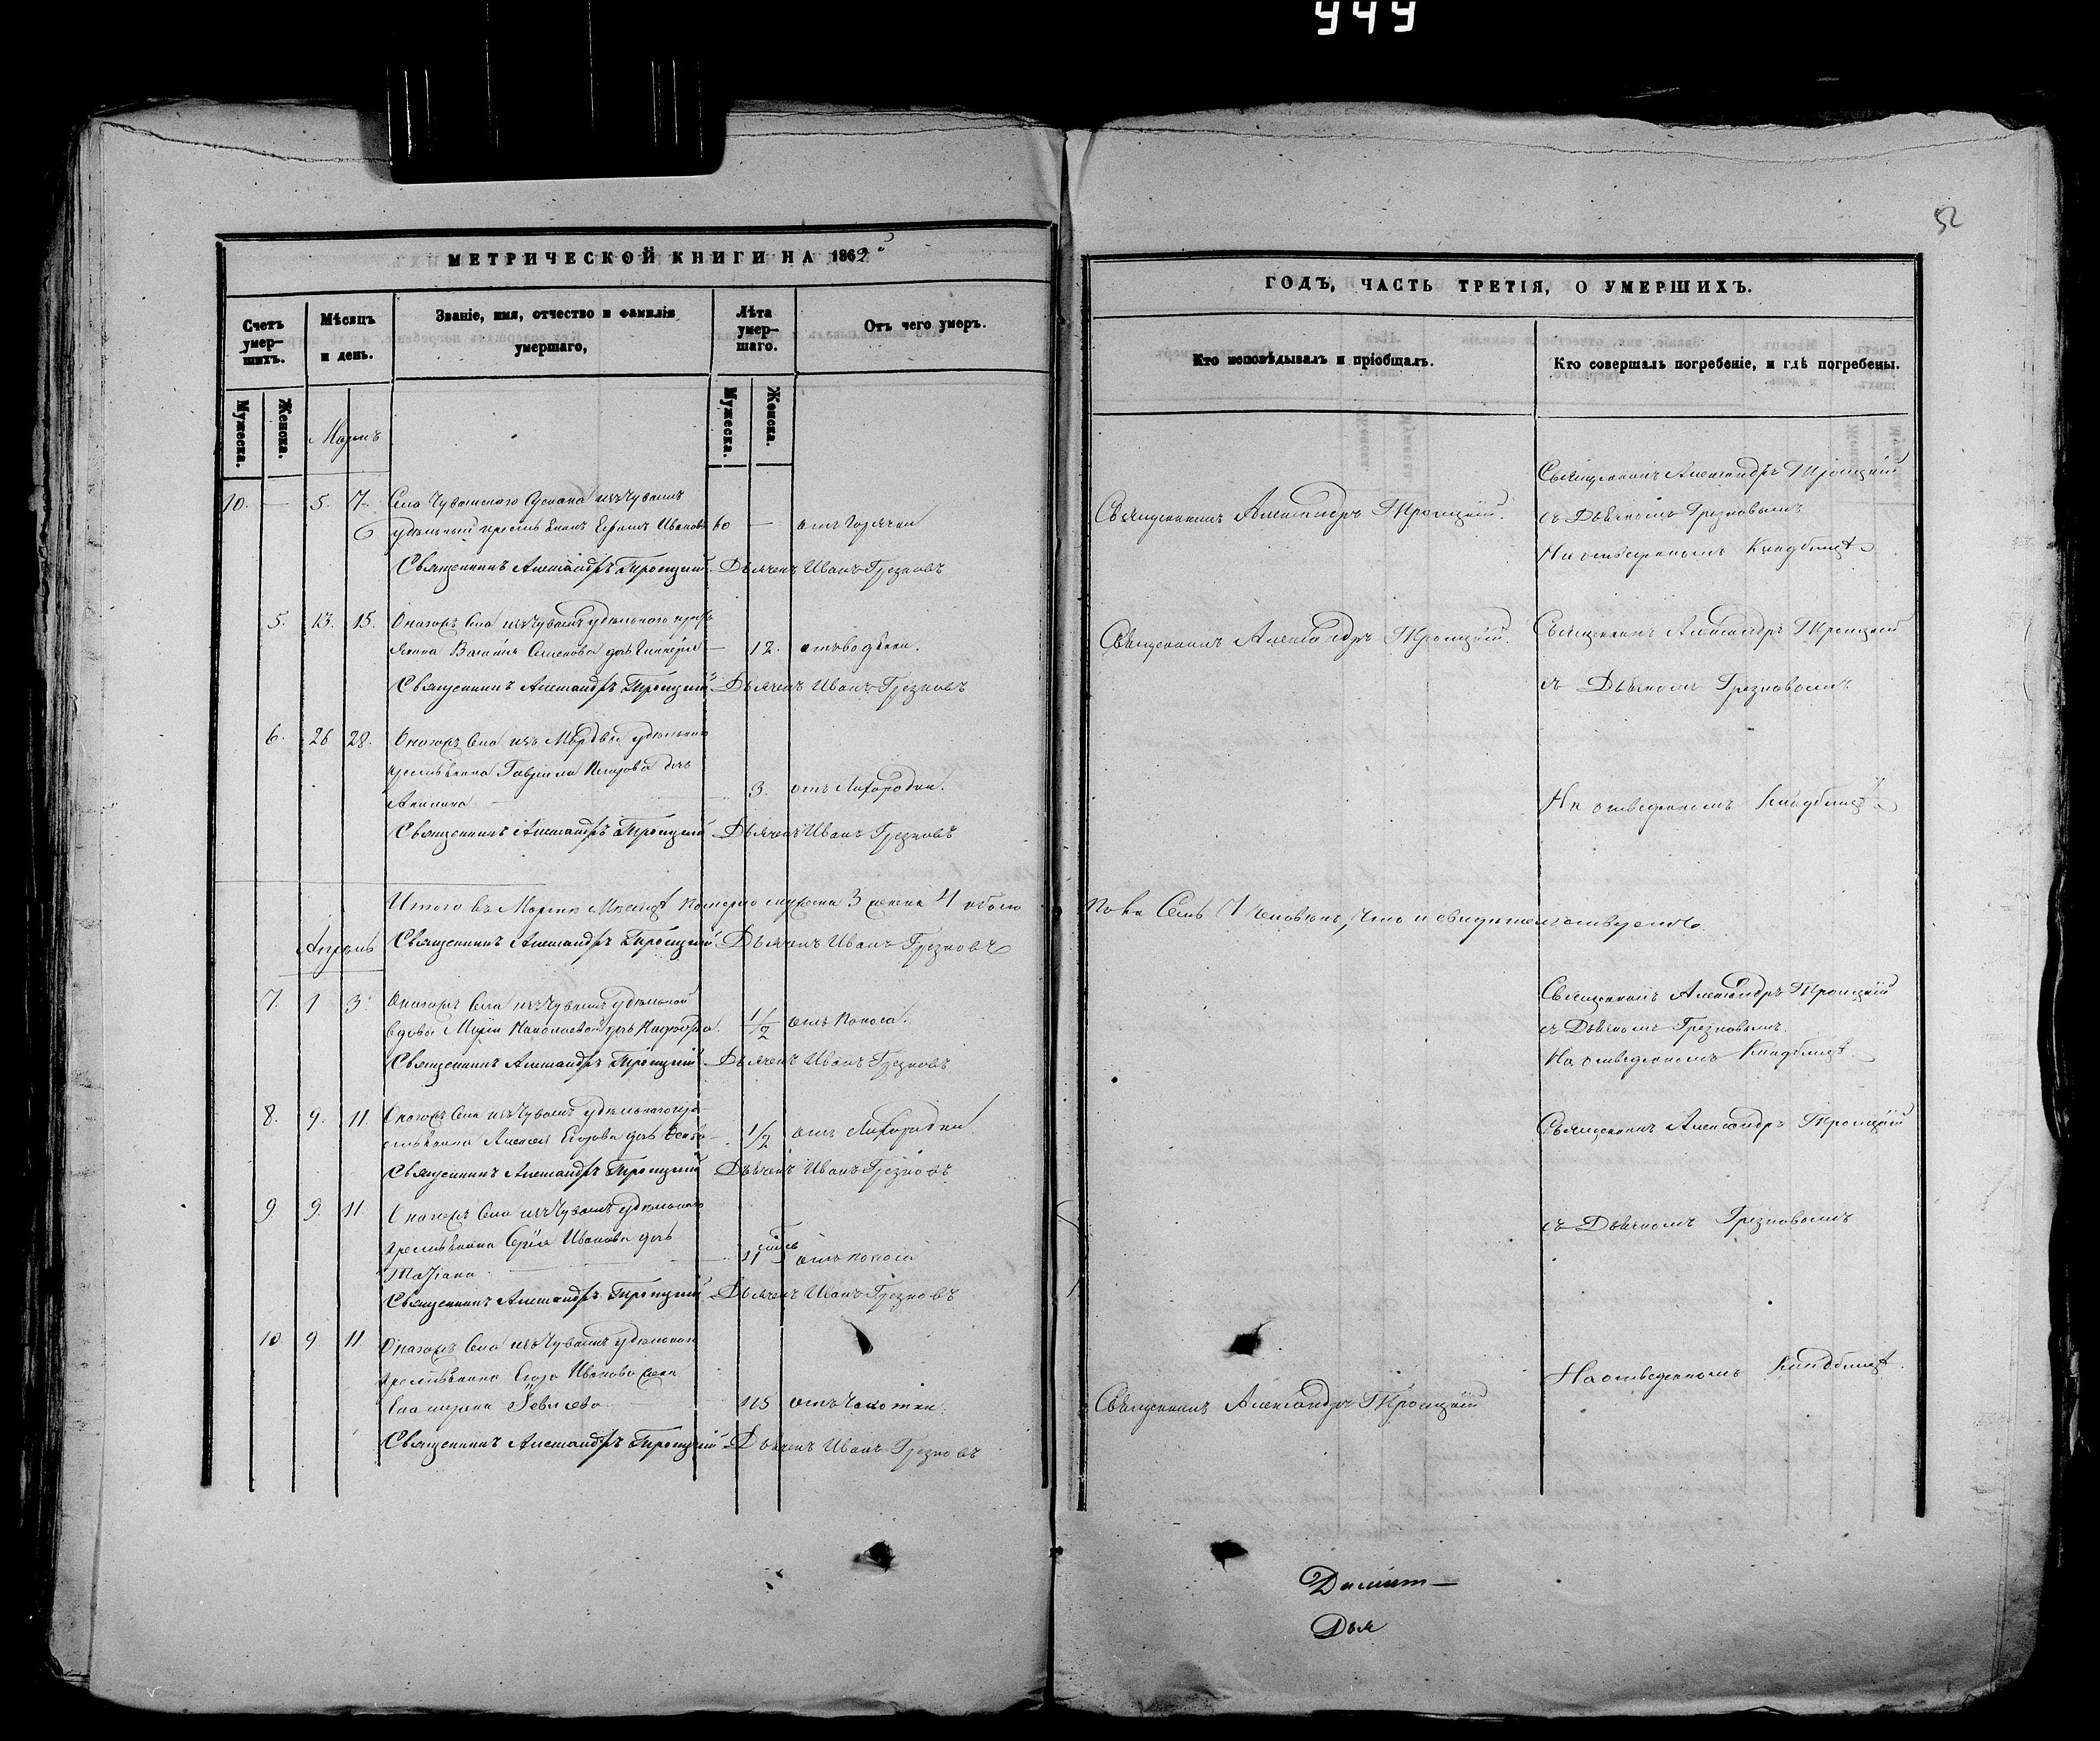 949
52
МЕТРИЧЕСКОЙ КНИГИ НА 1862й
ГОДЪ, ЧАСТЬ ТРЕТІЯ, О УМЕРШИХЪ.
Счетъ умер-шихъ.
Мѣсяцъ и день.
Званіе, имя, отчество и фамилія умершаго,
Лѣта умер-шаго.
Отъ чего умеръ.
Кто исповѣдывалъ и пріобщалъ.
Кто совершалъ погребеніе, и гдѣ погребены.
Мужеска.
Женска.
Мужеска.
Женска.
Мартъ
10. — 5. 7. Села Чувашского из Чувашъ
удѣльный крестьянинъ Ефимъ Ивановъ 60 — отъ горячки
Священникъ Александръ Троицкій. Дьячекъ Иванъ Грезновъ
Священникъ Александръ Троицкій.
Священникъ Александръ Троицкій
съ Дьячкомъ Грезновымъ
На отведенномъ Кладбищѣ
5. 13. 15. Онагожъ Села изъ Чувашъ удѣльнаго кресть
янина Семенова дочь — 12. отъ водянки.
Священникъ Александръ Троицкій Дьячекъ Иванъ Грезновъ
Священникъ Александръ Троицкій.
Священникъ Александръ Троицкій
съ Дьячкомъ Грезновымъ
6. 26 28. Онагожъ Села изъ Мордвы удѣльнаго
крестьянина Гавріила Петрова дочь
Акилина — 3. отъ Лихорадки.
Священникъ Александръ Троицкій Дьячекъ Иванъ Грезновъ
На отведенномъ Кладбищѣ
Итого въ Мартѣ Мѣсяцѣ померло мужска 3 женска 4 обоего
пола Семь 7 человѣкъ, что и свидѣтельствуемъ
Апрѣль
Священникъ Александръ Троицкій Дьячекъ Иванъ Грезновъ
7. 1 3. Онагожъ Села изъ Чувашъ удѣльной
вдовы Маріи Николаевой дочь 1/2 отъ Поноса.
Священникъ Александръ Троицкій Дьячекъ Иванъ Грезновъ
Священникъ Александръ Троицкій
съ Дьячкомъ Грезновымъ.
На отведенномъ Кладбищѣ.
8. 9. 11. Онагожъ Села изъ Чувашъ удѣльнаго кре
стьянина Алексея Егорова дочь 1/2 отъ Лихорадки
Священникъ Александръ Троицкій Дьячекъ Иванъ Грезновъ
Священникъ Александръ Троицкій
9 9. 11. Онагожъ Села изъ Чувашъ удѣльнаго
крестьянина Сергія Иванова дочь
Татіана 11 отъ поноса
Священникъ Александръ Троицкій Дьячекъ Иванъ Грезновъ
съ Дьячкомъ Грезновымъ
10 9 11 Онагожъ Села изъ Чувашъ удѣльнаго
крестьянина Егора Иванова жена
Екатерина 45 отъ Чахотки.
Священникъ Александръ Троицкій Дьячекъ Иванъ Грезновъ
Священникъ Александръ Троицкій
На отведенномъ Кладбищѣ.
Дья